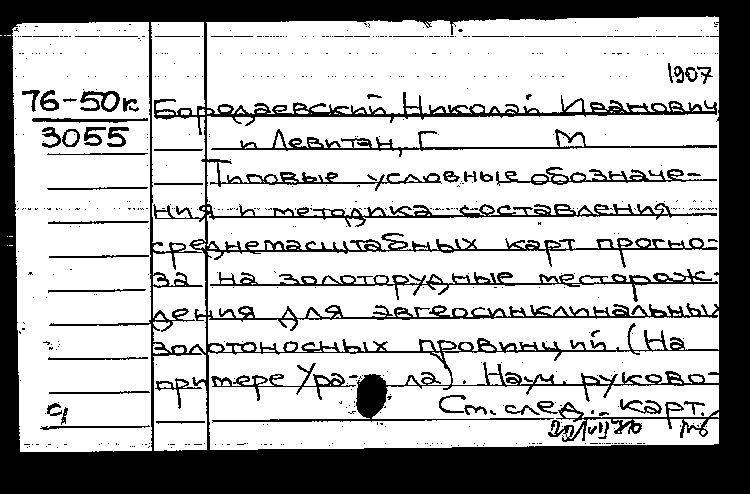 1907
76-50к
3055
Бородаевский, Николай Иванович
и Левитан, Г М
Типовые условные обозначе-
ния и методика составления
среднемасштабных карт прогно-
за на золоторудные месторож-
дения для эвгеосинклинальных
золотоносных провинций. (На
примере Ура- ла). Науч. руково-
См. след. карт.